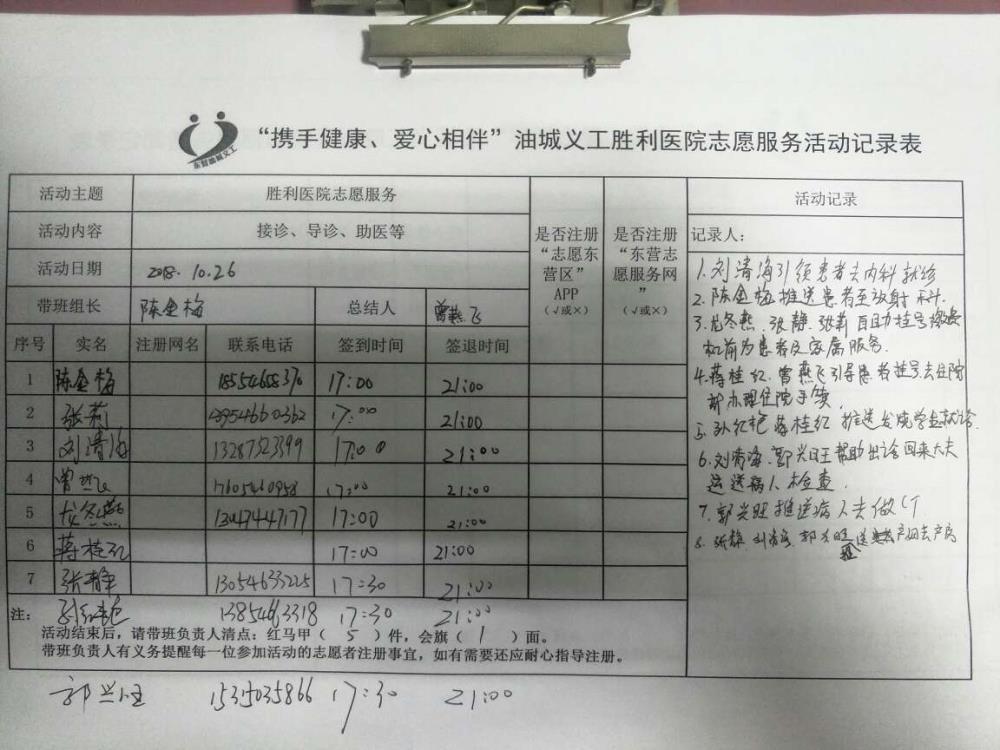 东营油城义工
“携手健康、爱心相伴”油城义工胜利医院志愿服务活动记录表
活动主题 胜利医院志愿服务
活动内容 接诊、导诊、助医等
活动日期 2018.10.26
带班组长 陈金梅 总结人 曾燕飞
序号 实名 注册网名 联系电话 签到时间 签退时间
是否注册
“志愿东
营区”
APP
(√或×)
是否注册
“东营志
愿服务网
”
(√或×)
1 陈金梅 17:00 21:00
2 张莉 17:00 21:00
3 刘清海 13287323399 17:00 21:00
4 曾燕飞 17605460958 17:00 21:00
5 尤冬燕 13047447177 17:00 21:00
6 蒋桂红 17:00 21:00
7 张静 13054633225 17:30 21:00
注： 孙红艳 17:30 21:00
活动结束后，请带班负责人清点：红马甲（ 5 ）件，会旗（ 1 ）面。
带班负责人有义务提醒每一位参加活动的志愿者注册事宜，如有需要还应耐心指导注册。
郭兴旺 15315035866 17:30 21:00
活动记录
记录人：
1.刘清海引领患者去内科就诊
2.陈金梅推送患者至放射科.
3.尤冬燕.张静.张莉自助挂号缴费
机前为患者及家属服务.
4.蒋桂红.曾燕飞引导患者挂号.去住院
部办理住院手续.
5.孙红艳蒋桂红推送发院学生就诊.
6.刘清海.郭兴旺帮助出诊回来大夫
运送病人检查.
7.郭兴旺推送病人去做CT
8.张静.刘清海.郭兴旺送产妇去产房